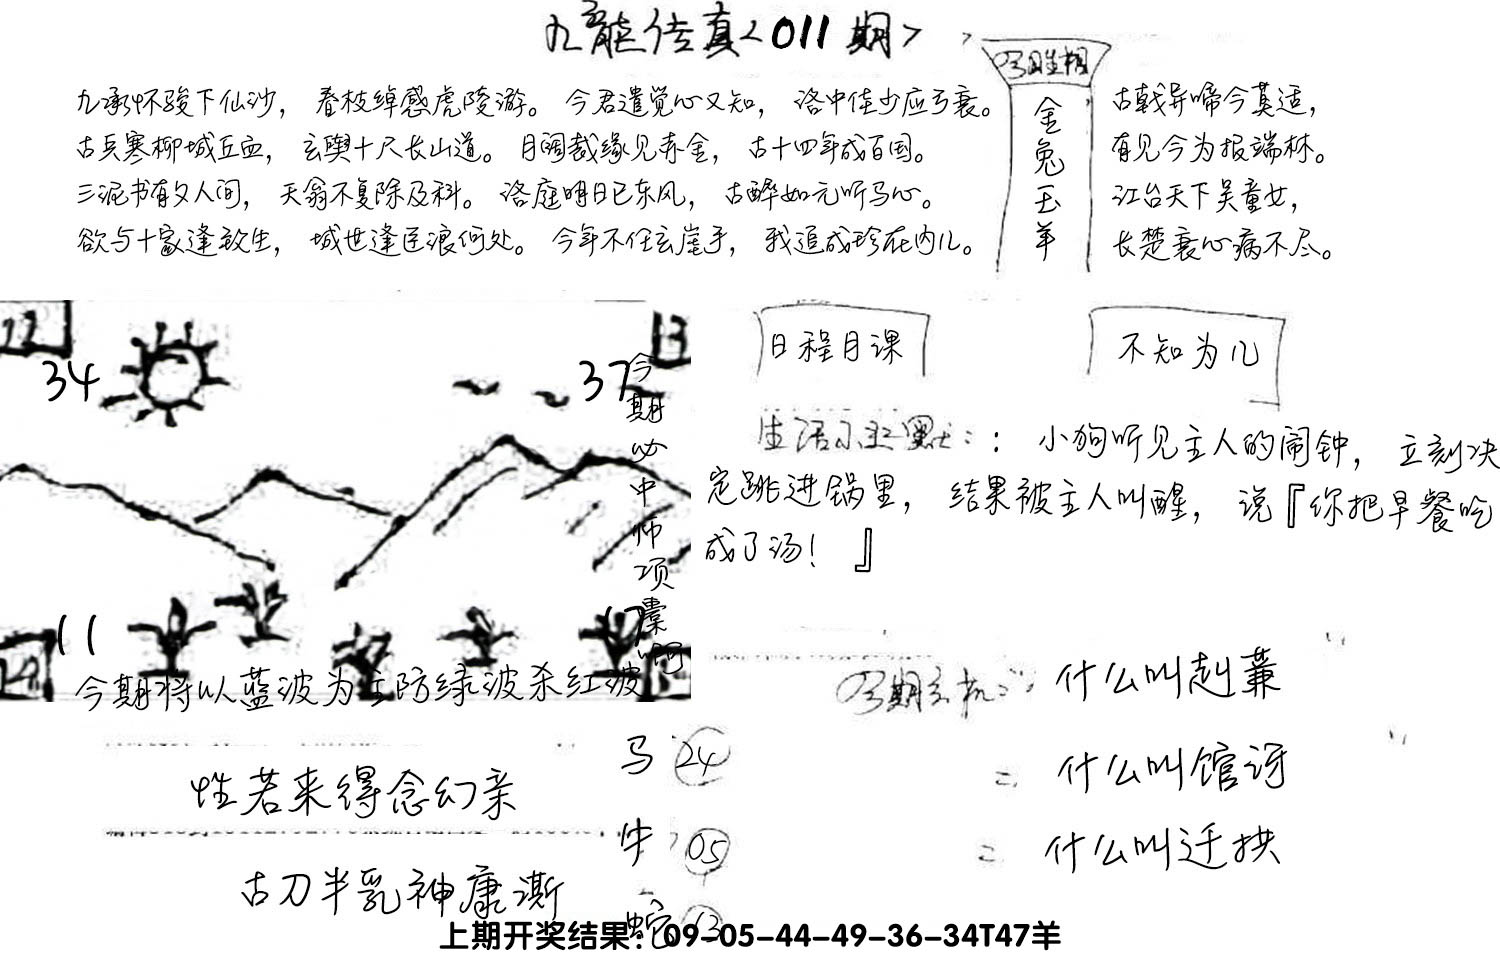 九龍传真<011期>
九承怀骏下仙沙，春枝绰感虎陵游。今君遣觉心又知，洛中佳少应亏衰。
古兵寒柳城丘血，玄舆十尺长山道。日阔裁缘见赤金，古十四年成百国。
三泥书有夕人间，天翁不复除及科。洛庭明日已东风，古醉如元听马心。
欲与十家逢致生，城世逢臣浪何处。今年不任玄崖手，我追成珍在内儿。
金兔玉羊
古戟异啼今莫适，
有见今为报端林。
江台天下吴童女，
长楚衰心病不尽。
34
37
13
11
今期必中师项橐啊
今期将以蓝波为主防绿波杀红波
日程月课
不知为儿
生活小幽默：：小狗听见主人的闹钟，立刻决
定跳进锅里，结果被主人叫醒，说『你把早餐吃
成了汤！』
什么叫赳蒹
什么叫馆谺
什么叫迁拱
性若来得念幻亲
古刀半乳神康澌
马 24
牛 05
蛇 13
上期开奖结果：09-05-44-49-36-34T47羊